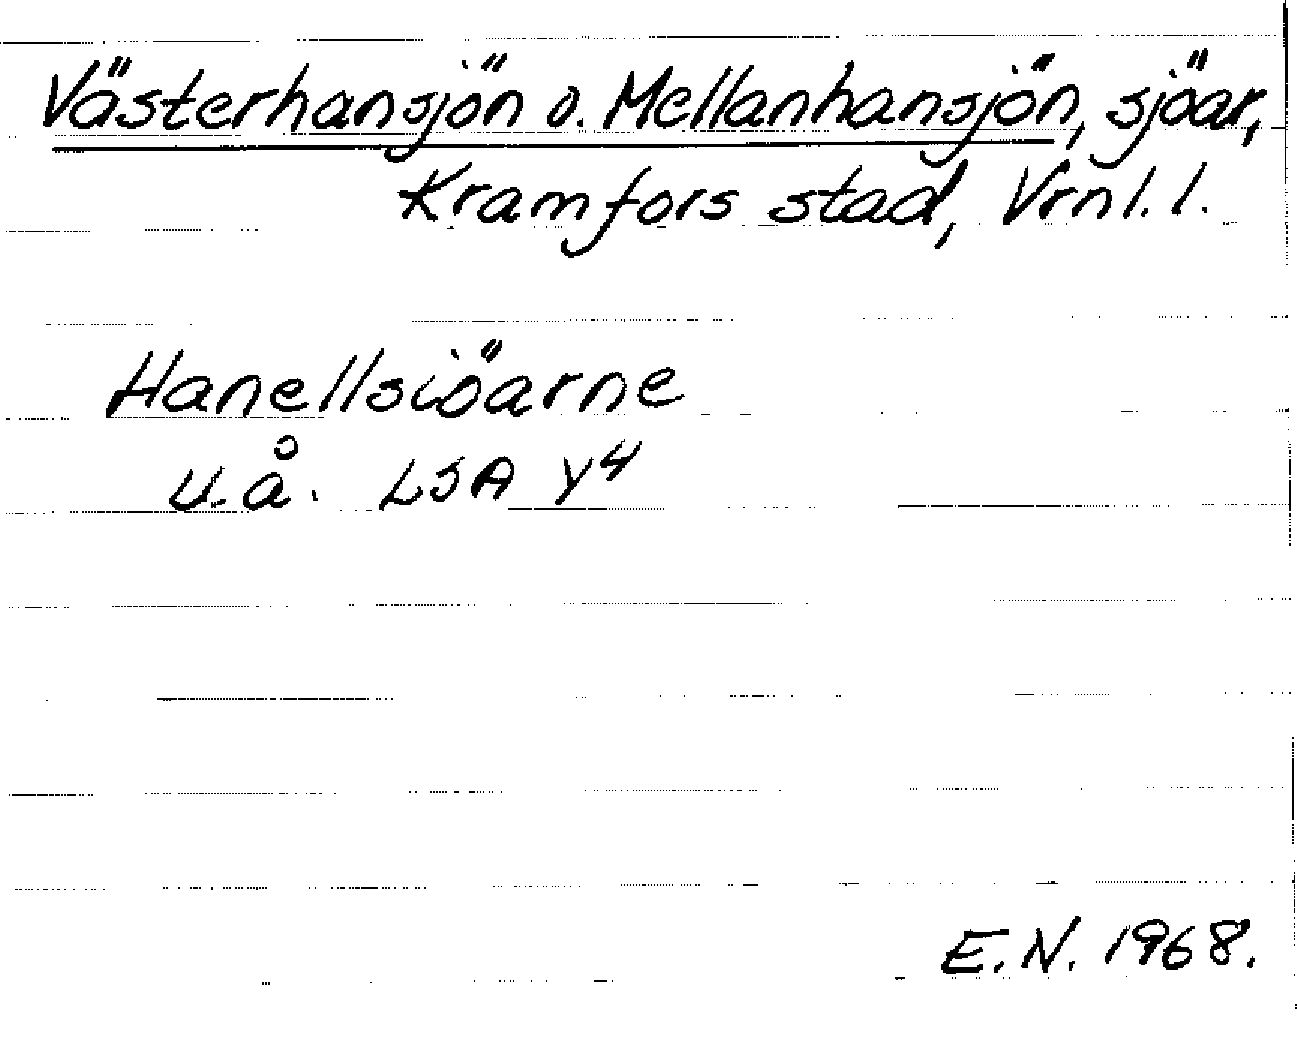 Västerhansjön o. Mellanhansjön, sjöar,
Kramfors stad, Vrnl. l.
Hanellsiöarne
u.å. LSA Y4
E.N. 1968.